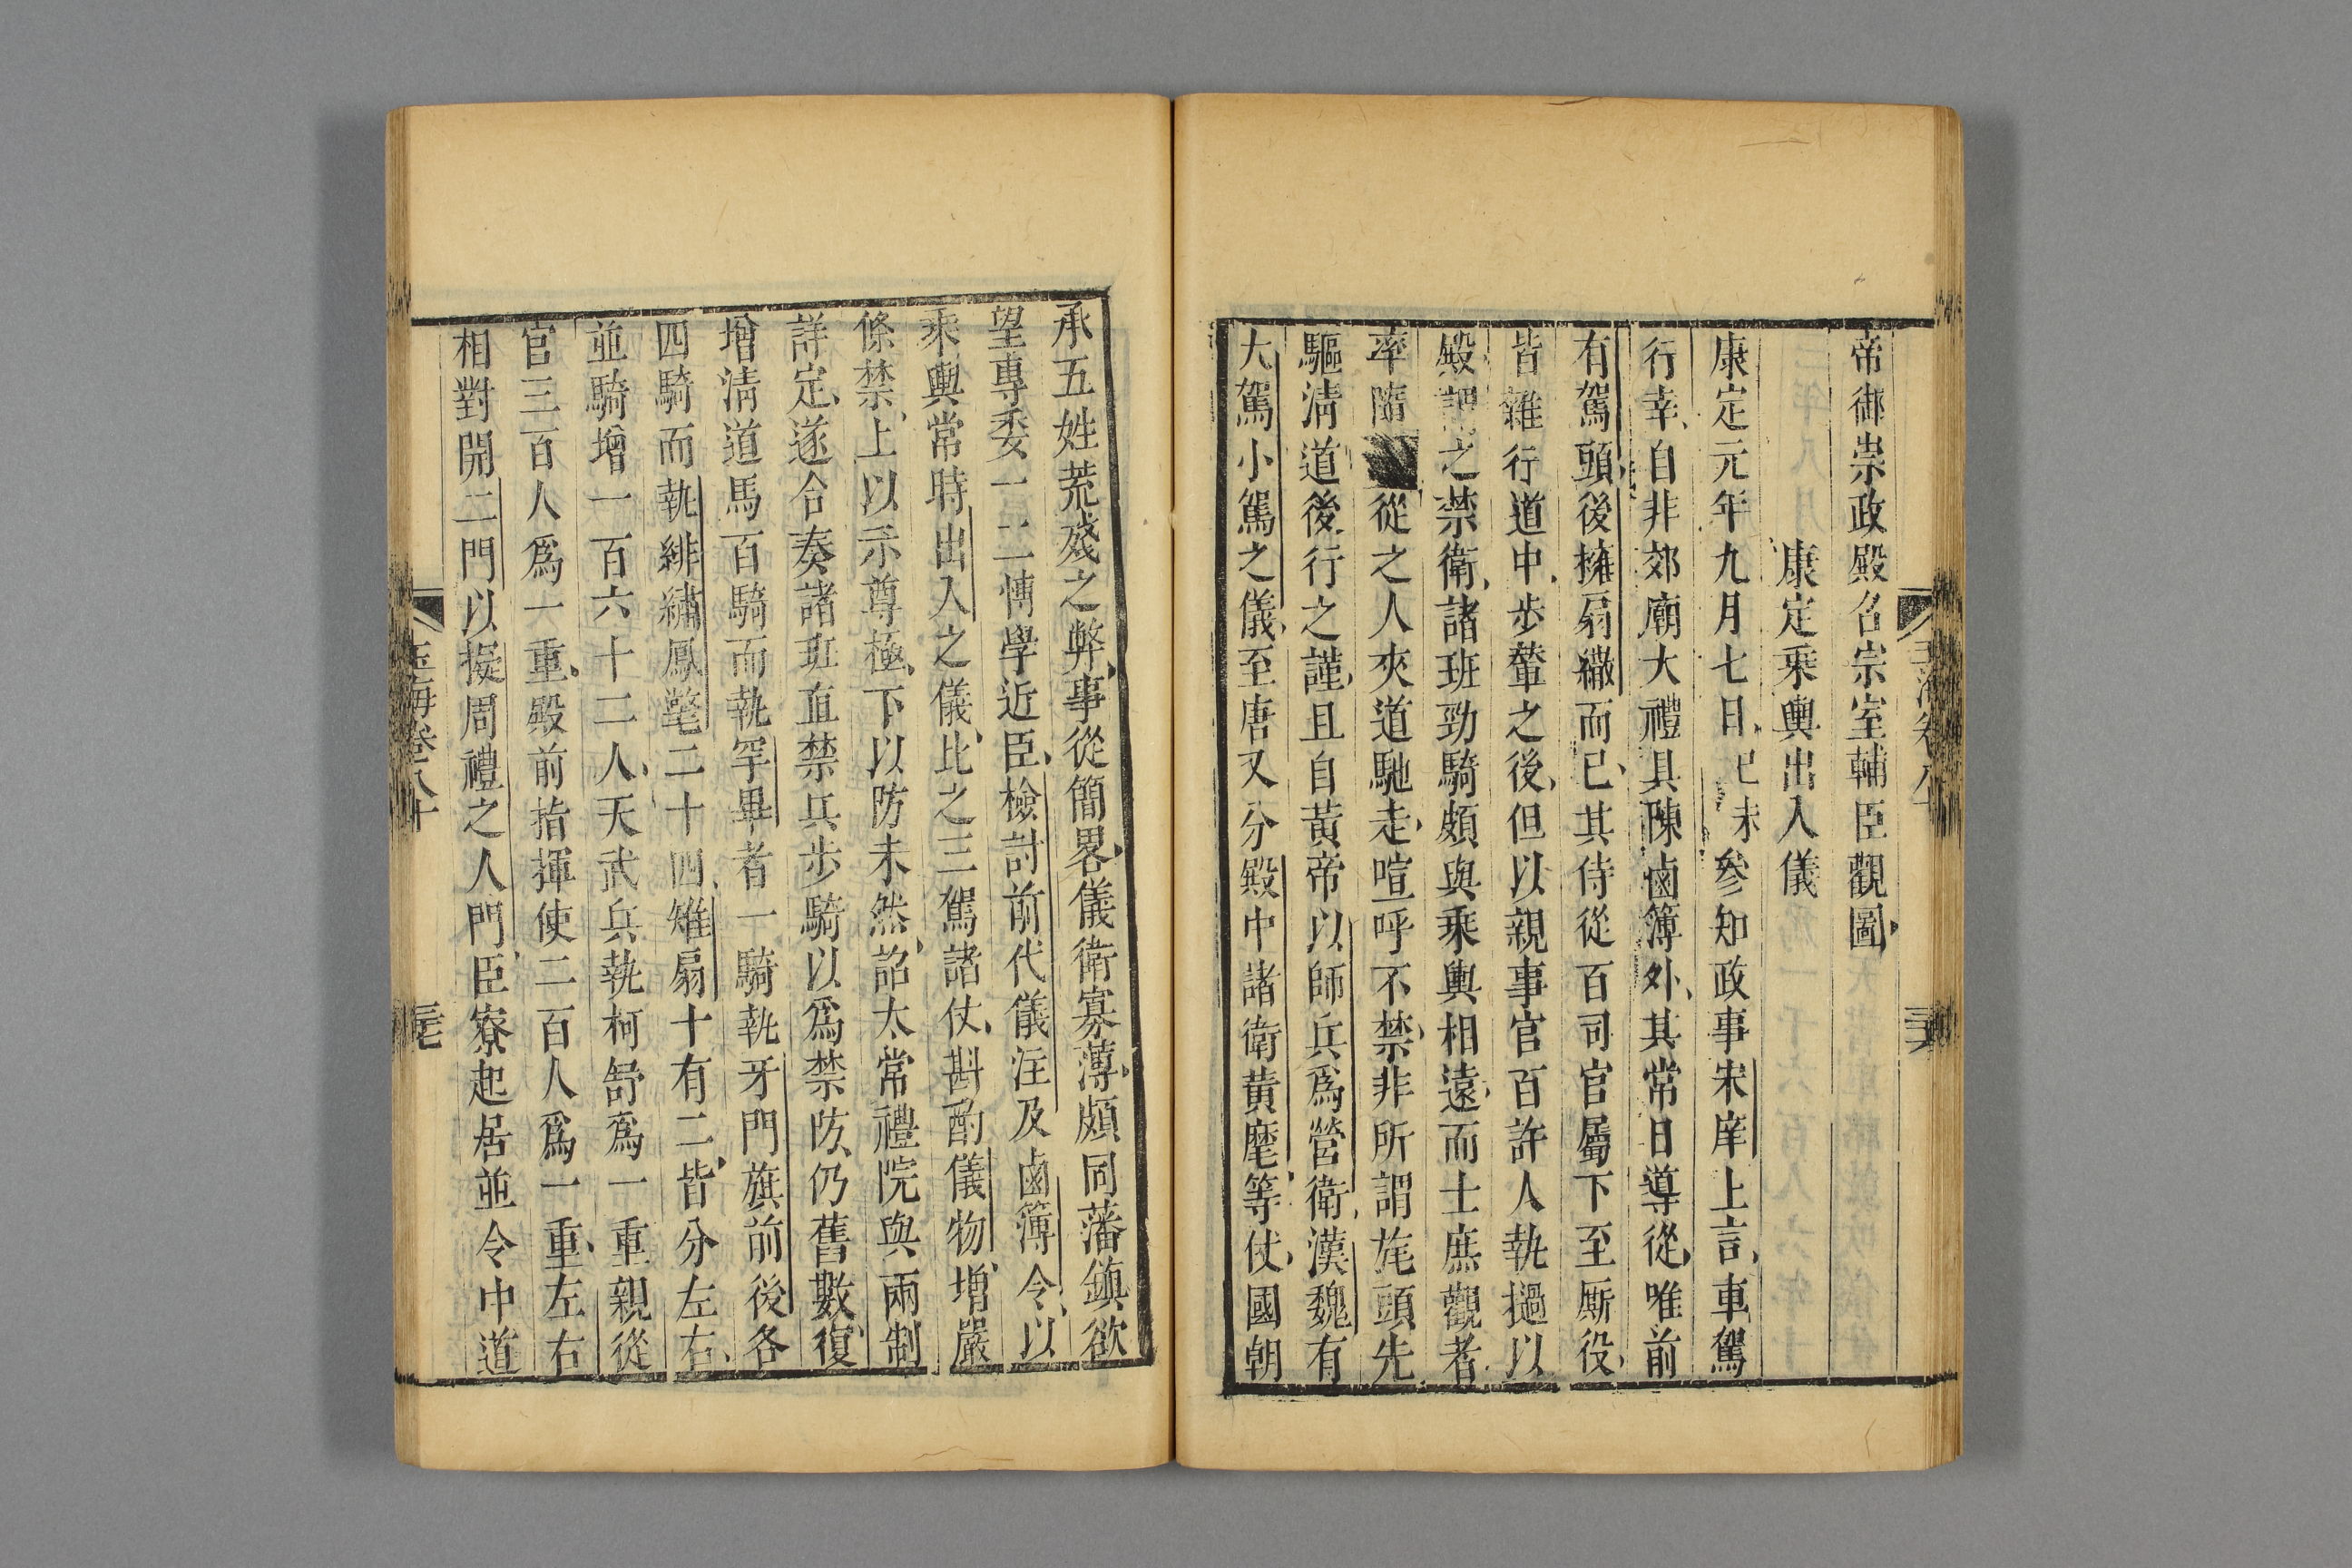 帝御崇政殿名宗室輔臣觀圖
康定乘輿出入儀
康定元年九月七日己未參知政事宋庠上言車駕
行幸自非郊廟大禮具陳鹵簿外其常日導從唯前
有駕頭後擁扇繖而已其侍從百司官屬下至厮役
皆雜行道中步輦之後但以親事官百許人執撾以
殿謂之禁衛諸班勁騎頗與乘輿相遠而士庶觀者
率隨從之人夾道馳走喧呼不禁非所謂旄頭先
驅淸道後行之謹且自黃帝以師兵爲營衛漢魏有
大駕小駕之儀至唐又分殿中諸衛黃麾等仗國朝
玉海卷八十
承五姓荒殘之弊事從簡畧儀衛寡薄頗同藩鎮欲
望專委一二博學近臣檢討前代儀注及鹵簿令以
乘輿常時出入之儀比之三駕諸仗斟酌儀物增嚴
條禁上以示尊極下以防未然詔太常禮院與兩制
詳定遂合奏諸班直禁兵步騎以爲禁防仍舊數復
增淸道馬百騎而執罕畢者一騎執牙門旗前後各
四騎而執緋繡鳳氅二十四雉扇十有二皆分左右
並騎增一百六十二人天武兵執柯舒爲一重親從
官三百人爲一重殿前指揮使二百人爲一重左右
相對開二門以擬周禮之人門臣寮起居並令中道
玉海卷八十